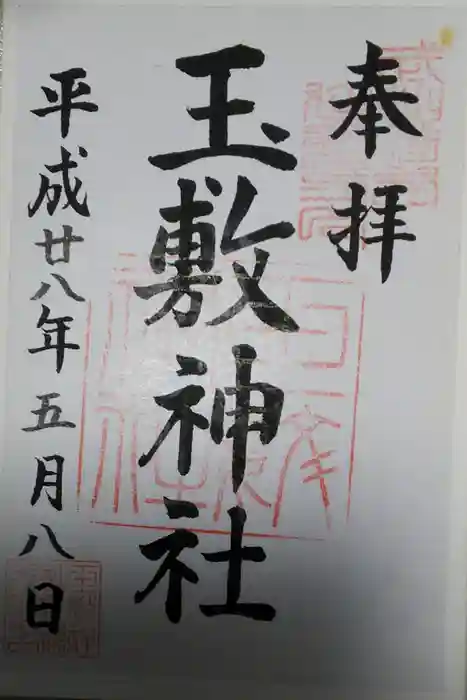 奉拝
玉敷神社
平成廿八年五月八日